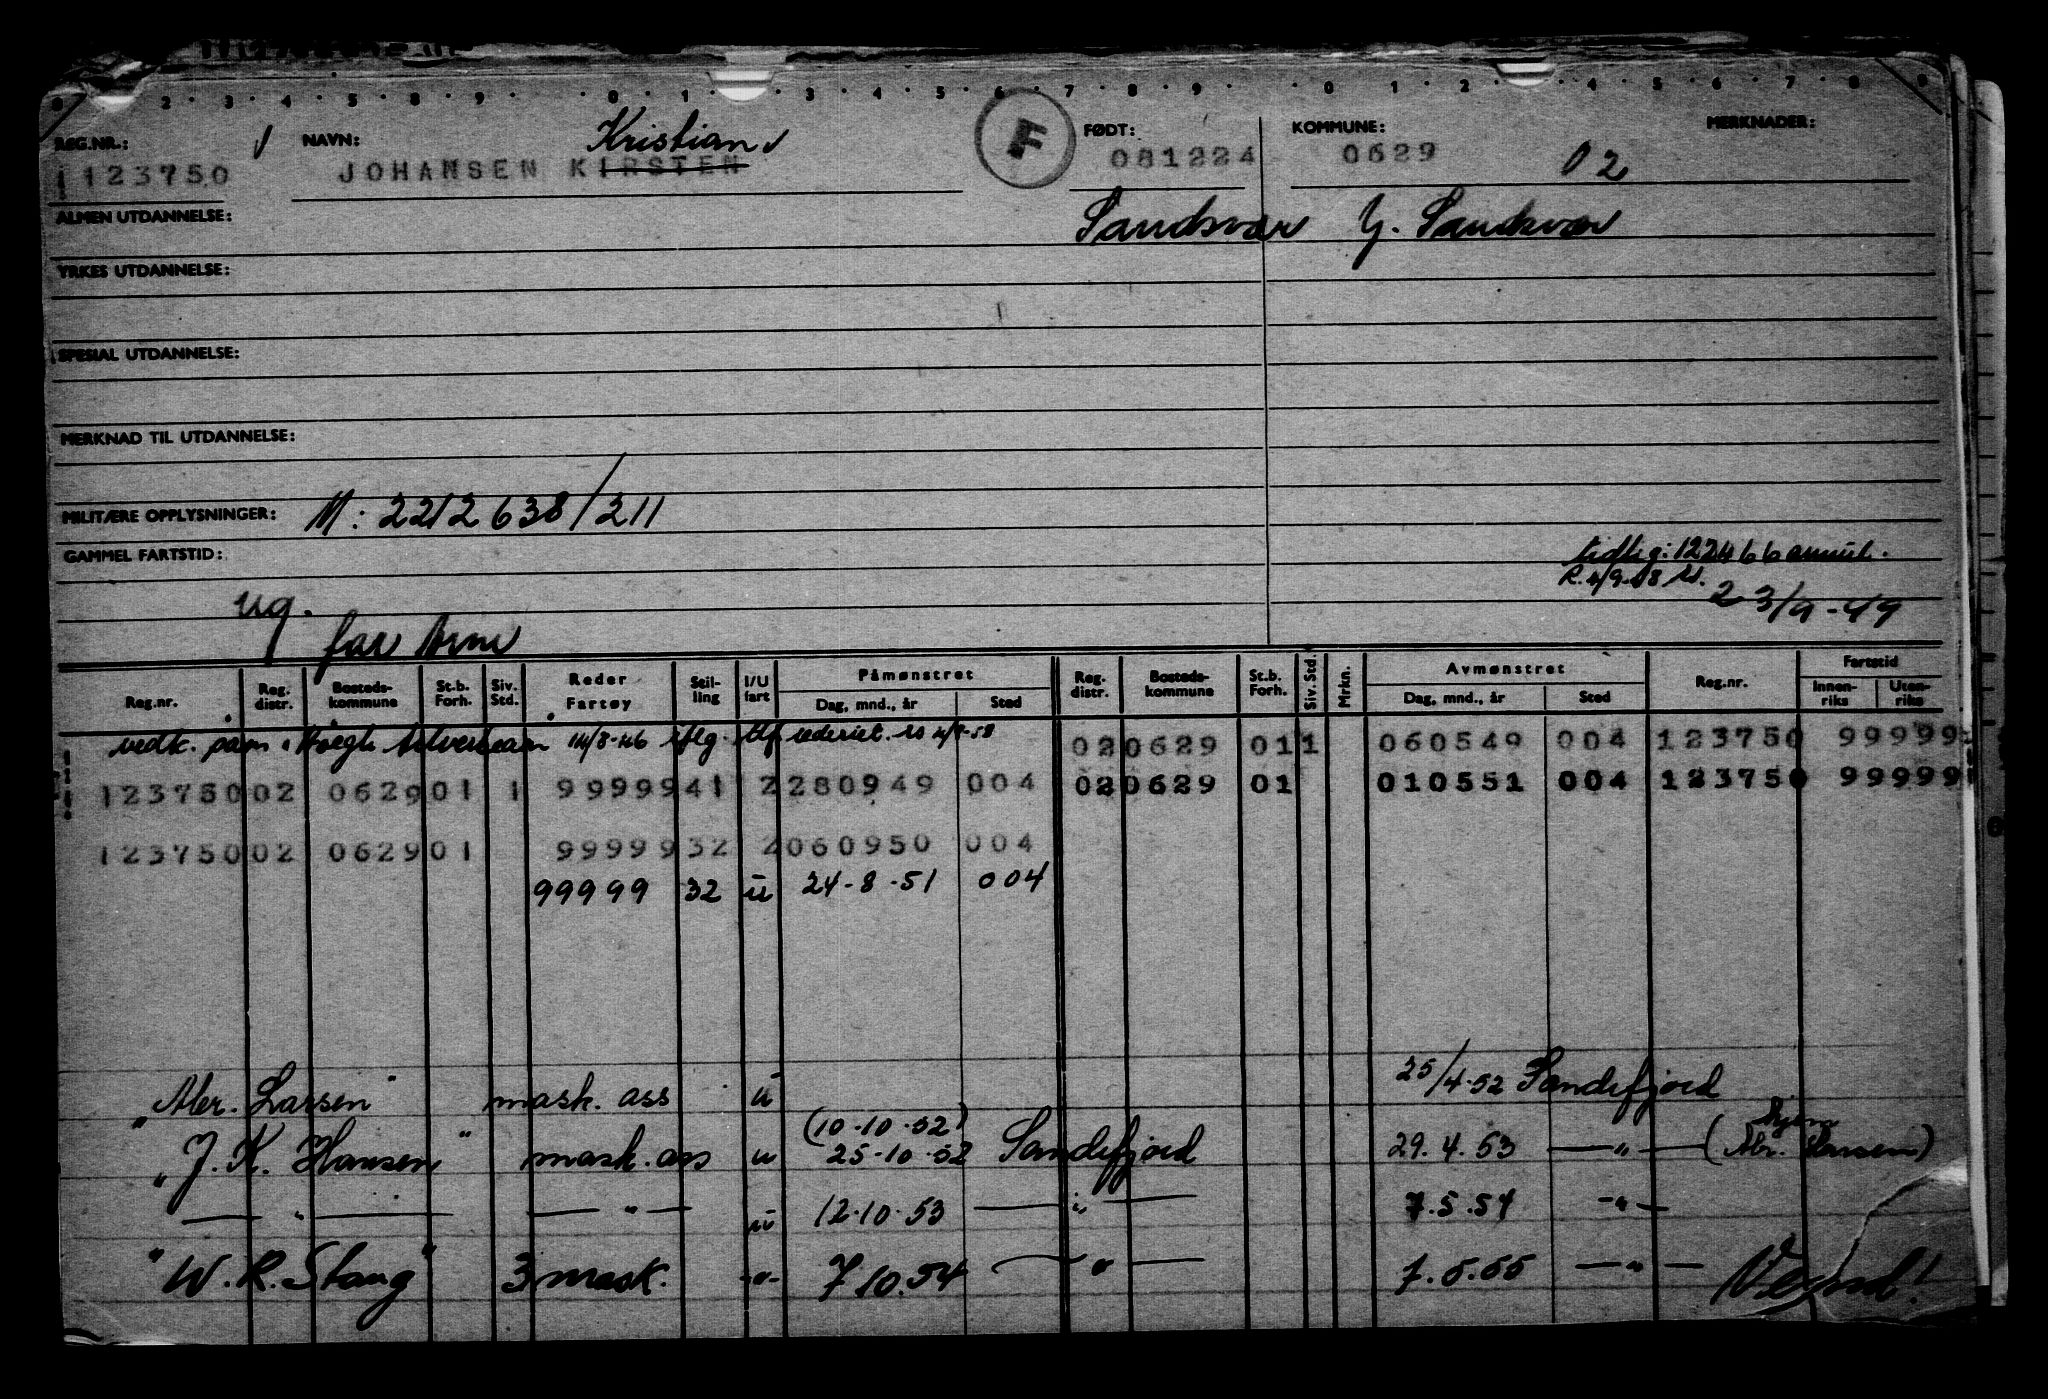 0 2 · 3 · 4 · 5 · 8 · 9 · 0 · 1 · 3 · 4 · 5 · 6 · 7 · 8 · 9 · 0 1 · 2 · 4 · 5 6 · 7 · 8 · 9
REG.NR.: NAVN: Kristian F FØDT: KOMMUNE: MERKNADER:
123750 JOHANSEN KIRSTEN 081224 0629 02
ALMEN UTDANNELSE: Sandsvær Y. Sandsvær
YRKES UTDANNELSE:
SPESIAL UTDANNELSE:
MERKNAD TIL UTDANNELSE:
MILITÆRE OPPLYSNINGER: M: 2212638/211
GAMMEL FARTSTID: tidlig: 122466 annul.
R. 4/9-58
ug. 23/9-49
far Arne
Reg.nr. Reg. distr. Bosteds-kommune St.b. Forh. Siv. Std. Reder Fartøy Stil-ling I/U fart Påmønstret Dag, mnd., år Sted Reg. distr. Bosteds-kommune St.b. Forh. Siv. Std. Mrkn. Avmønstret Dag, mnd., år Sted Reg.nr. Fartstid Innen-riks Uten-riks
vedk. påm. Høegh Silver 14/8-46 iflg. rederiet. 4/9-58 02 0629 01 1 060549 004 123750 99999
123750 02 0629 01 1 99999 41 2 280949 004 02 0629 01 010551 004 123750 99999
123750 02 0629 01 99999 32 2 060950 004
99999 32 u 24-8-51 004
"Abr. Larsen" mask. ass u 25/4-52 Sandefjord
"J. K. Hansen" mask. ass u (10-10-52) 25-10-52 Sandefjord 29.4.53 — " — (Abr. Larsen)
— " — — " — u 12-10-53 — " — 7.5.54 — " —
"W. R. Stang" 3 mask. -"- 7 10.54 — " — 7.5.55 — " — Vend!